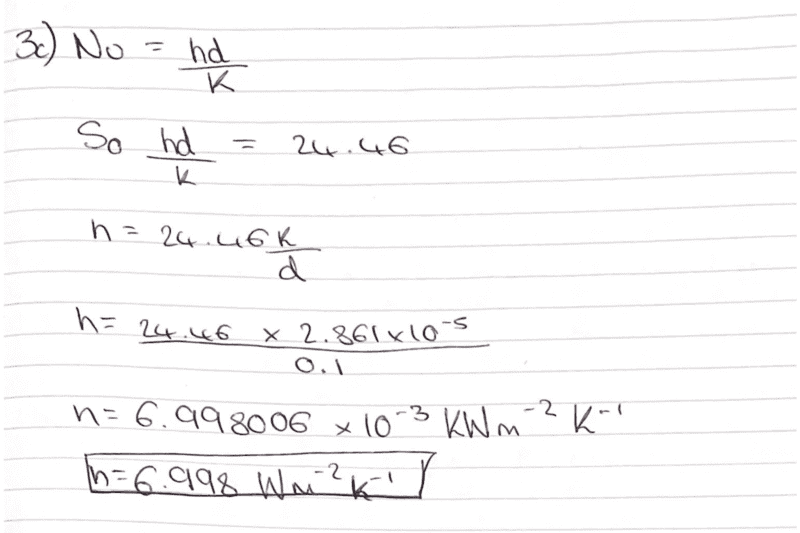 3c) Nu = hd/k
So hd/k = 24.46
h = 24.46k/d
h = 24.46 × 2.861×10⁻⁵/0.1
h = 6.998006 × 10⁻³ kWm⁻² K⁻¹
h = 6.998 Wm⁻² K⁻¹